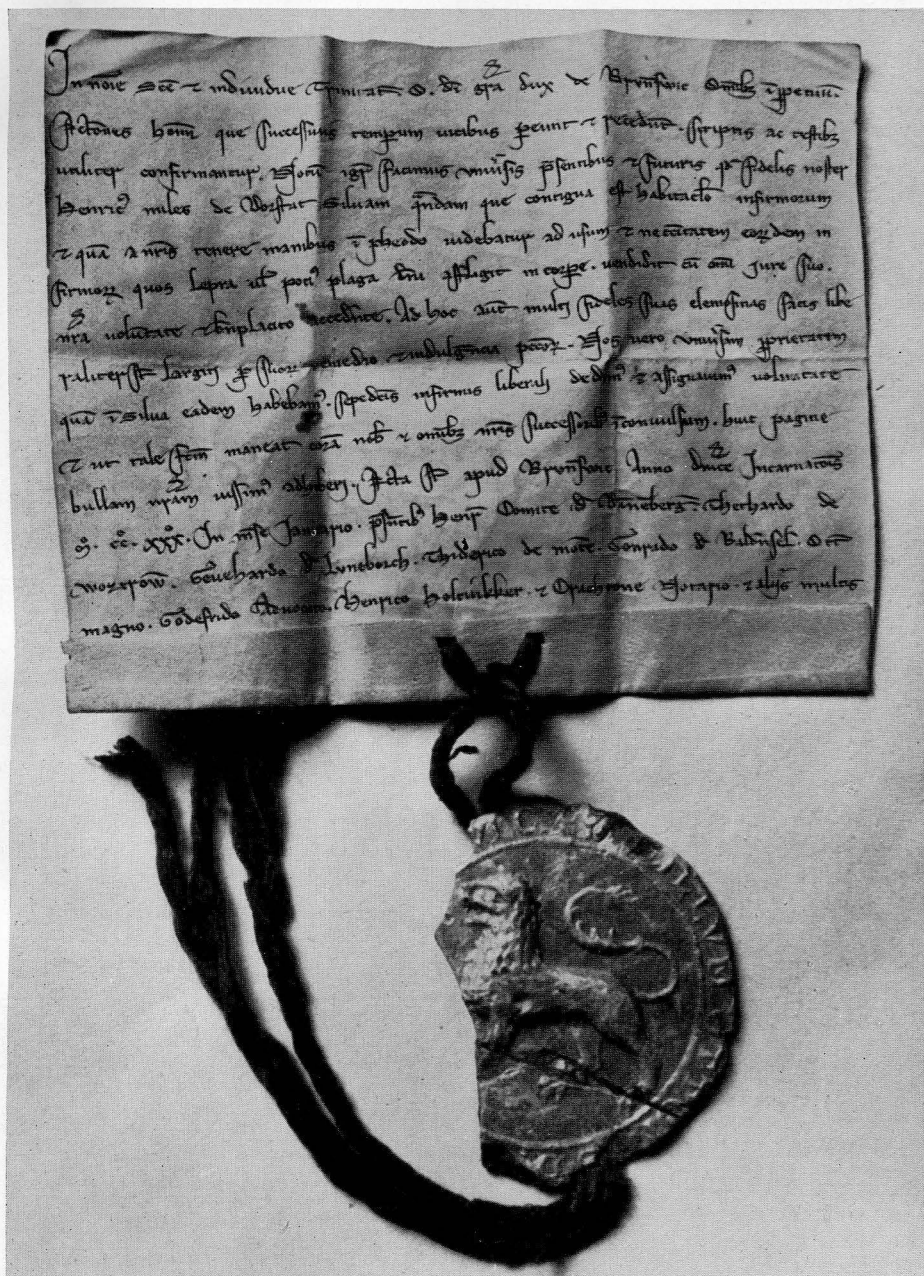 In noīe Scē ⁊ individue Trinitatꝭ O. dī gr̄a dux de Brunſwic Omībꝫ ī ꝑpetuū.
Actōnes hom̄ que ſucceſſivis temporum vicibus ꝑeunt ⁊ recedūt. ſcriptis ac teſtibꝫ
utiliter confirmantur. Notū igͬ facimus univſis p̄ſentibus ⁊ futuris qͩ fidelis noſter
Henricꝰ miles de Worſtat Silvam qͣndam que contigua eſt habitacl̄o infirmorum
⁊ quā a nr̄is tenere manibus ī pheodo videbatur ad uſum ⁊ neceſſitatem eorūdem in
firmoꝝ quos lepra vl̄ pociꝰ plaga dn̄i affligit in corꝑe. vendidit cū om̄i jure ſuo.
nr̄a volūtate ⁊ bn̄placito accedente. Ad hoc aut̄ multi fideles ſuas elemoſinas ſatis libe
raliter ſt̄ largiti ꝓ ſuoꝝ remedio ⁊ indulgencia pctōꝝ. Nos vero univſam ꝓprietatem
quā ī Silva eadem habebamꝰ. ſepedictis infirmis liberali dedimꝰ ⁊ aſſignavimꝰ voluntate
⁊ ut tale fctm̄ maneat corā nob̄ ⁊ omībꝫ nr̄is ſucceſſoribꝫ īconvulſum. huic pagine
bullam nr̄am iuſſimꝰ adhiberi. Acta ſt̄ apud Brunſwic Anno dn̄ice Incarnatōis
M. CC. XXX. In mēſe Januario. p̄ſentibꝰ Henr̄ Comite d̄ Danneberg. Gherhardo de
Wozͬrow. Gevehardo d̄ Luneborch. Thiderico de mōte. Conrado d̄ Badenſel. Ott
magno. Godefrido Advocato. Henrico Holtvikker. ⁊ Notario. ⁊ aliis multis